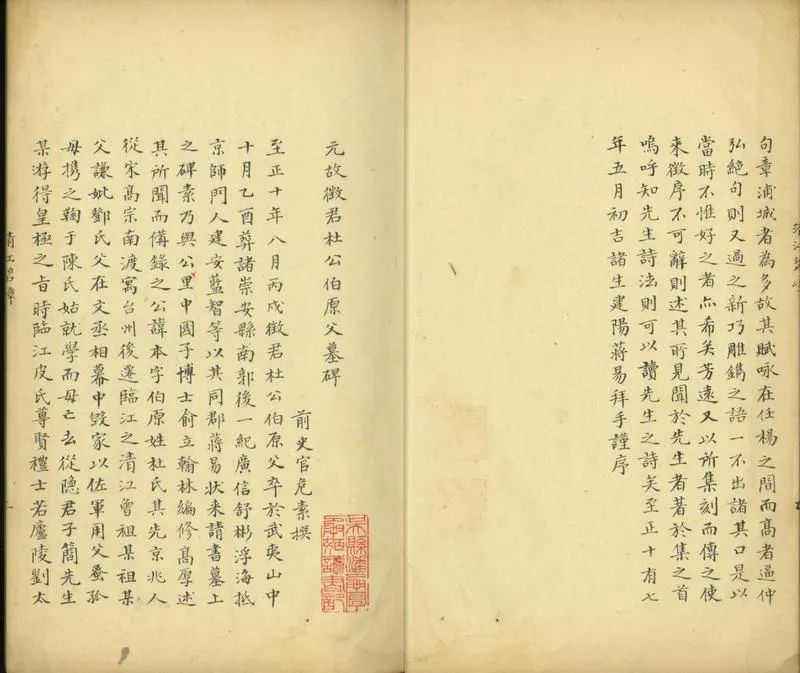 句章浦城者為多故其賦咏在任楊之間而髙者逼仲
弘絶句則又過之新巧雕鐫之語一不出諸其口是以
當時不惟好之者亦希矣芳遠又以所集刻而傳之使
來徴序不可辭則述其所見聞於先生者著於集之首
嗚呼知先生詩法則可以讀先生之詩矣至正十有七
年五月初吉諸生建陽蔣易拜手謹序
元故徵君杜公伯原父墓碑
前史官危素撰
至正十年八月丙戍徵君杜公伯原父卒於武夷山中
十月乙酉葬諸崇安縣南郭後一紀廣信舒彬浮海抵
京師門人建安藍智等以其同郡蔣易狀来請書墓上
之碑素乃與公里中國子博士俞立翰林編修髙厚述
其所聞而備錄之公諱本字伯原姓杜氏其先京兆人
從宋髙宗南渡寓台州後遷臨江之清江曾祖某祖某
父謙妣鄧氏父在文丞相幕中毀家以佐軍用父蚤孤
母携之鞠于陳氏姑就學而母亡去從隐君子簡先生
某游得皇極之旨時臨江皮氏尊賢禮士若廬陵劉太
清江碧嶂